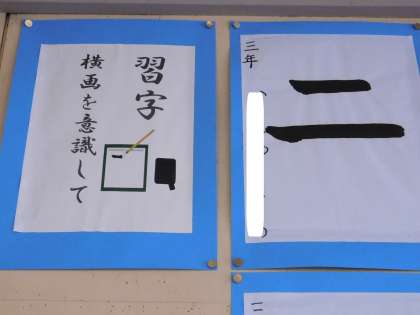 習字
横画を意識して
三年
二